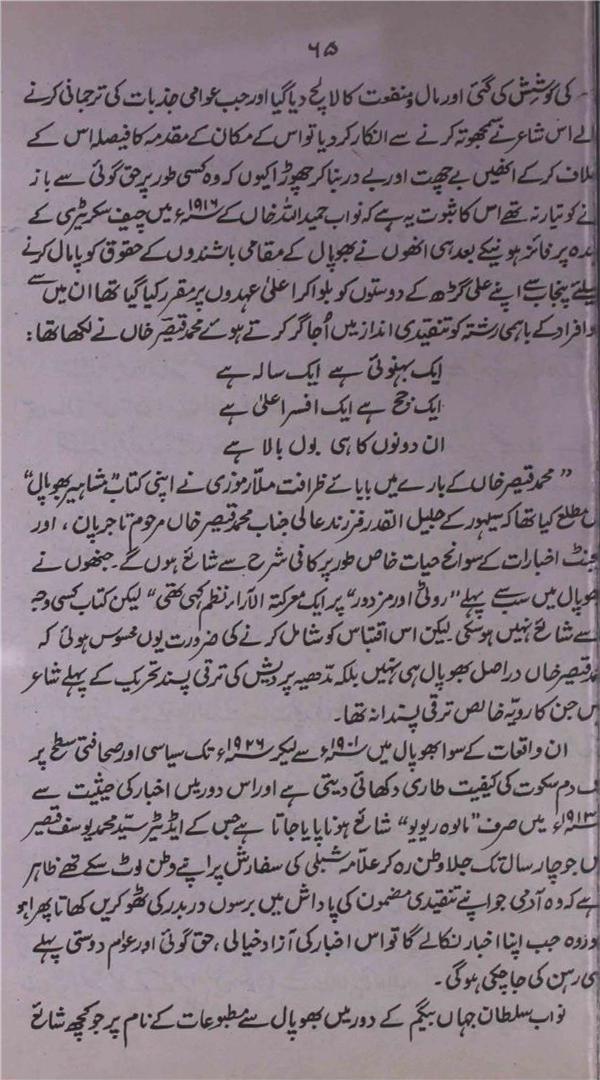 ۶۵
کی کوشش کی گئی اور مال و منفعت کا لالچ دیا گیا اور جب عوامی جذبات کی ترجمانی کرنے
لے اس شاعر نے سمجھوتہ کرنے سے انکار کر دیا تو اس کے مکان کے مقدمہ کا فیصلہ اس کے
لاف کر کے انھیں بے چھت اور بے در بنا کر چھوڑا کیوں کہ وہ کسی طور پر حق گوئی سے باز
نے کو تیار نہ تھے اس کا ثبوت یہ ہے کہ نواب حمید اللہ خاں کے ۱۹۱۶ء میں چیف سکریٹری کے
ہدہ پر فائز ہونیکے بعد ہی انھوں نے بھوپال کے مقامی باشندوں کے حقوق کو پامال کرنے
یلئے پنجاب سے اپنے علی گڑھ کے دوستوں کو بلوا کر اعلیٰ عہدوں پر مقرر کیا گیا تھا ان میں سے
و افراد کے باہمی رشتہ کو تنقیدی انداز میں اُجاگر کرتے ہوئے محمد قیصر خاں نے لکھا تھا :
ایک بہنوئی ہے ایک سالہ ہے
ایک جج ہے ایک افسر اعلیٰ ہے
ان دونوں کا ہی بول بالا ہے
”محمد قیصر خاں کے بارے میں بابائے ظرافت ملا رموزی نے اپنی کتاب ”مشاہیر بھوپال“
ں مطلع کیا تھا کہ سیہور کے جلیل القدر فرزند عالی جناب محمد قیصر خاں مرحوم تاجر پان ، اور
جنٹ اخبارات کے سوانح حیات خاص طور پر کافی شرح سے شائع ہوں گے ۔ جنھوں نے
ھوپال میں سب سے پہلے ”روٹی اور مزدور“ پر ایک معرکتہ الآراء نظم کہی تھی“ لیکن کتاب کسی وجہ
سے شائع نہیں ہو سکی لیکن اس اقتباس کو شامل کرنے کی ضرورت یوں محسوس ہوئی کہ
مد قیصر خاں در اصل بھوپال ہی نہیں بلکہ مدھیہ پردیش کی ترقی پسند تحریک کے پہلے شاعر
یں جن کا رویّہ خالص ترقی پسندانہ تھا ۔
ان واقعات کے سوا بھوپال میں ۱۹۰۱ء سے لیکر ۱۹۲۶ء تک سیاسی اور صحافتی سطح پر
ک دم سکوت کی کیفیت طاری دکھائی دیتی ہے اور اس دور میں اخبار کی حیثیت سے
۱۹۱۳ء میں صرف ”مالوہ ریویو“ شائع ہونا پایا جاتا ہے جس کے ایڈیٹر سیّد محمد یوسف قیصر
ں جو چار سال تک جلا وطن رہ کر علامہ شبلی کی سفارش پر اپنے وطن لوٹ سکے تھے ظاہر
ہے کہ وہ آدمی جو اپنے تنقیدی مضمون کی پاداش میں برسوں در بدر کی ٹھوکریں کھاتا پھرا ہو
وہ جب اپنا اخبار نکالے گا تو اس اخبار کی آزاد خیالی ، حق گوئی اور عوام دوستی پہلے
ی رہن کی جا چکی ہوگی ۔
نواب سلطان جہاں بیگم کے دور میں بھوپال سے مطبوعات کے نام پر جو کچھ شائع